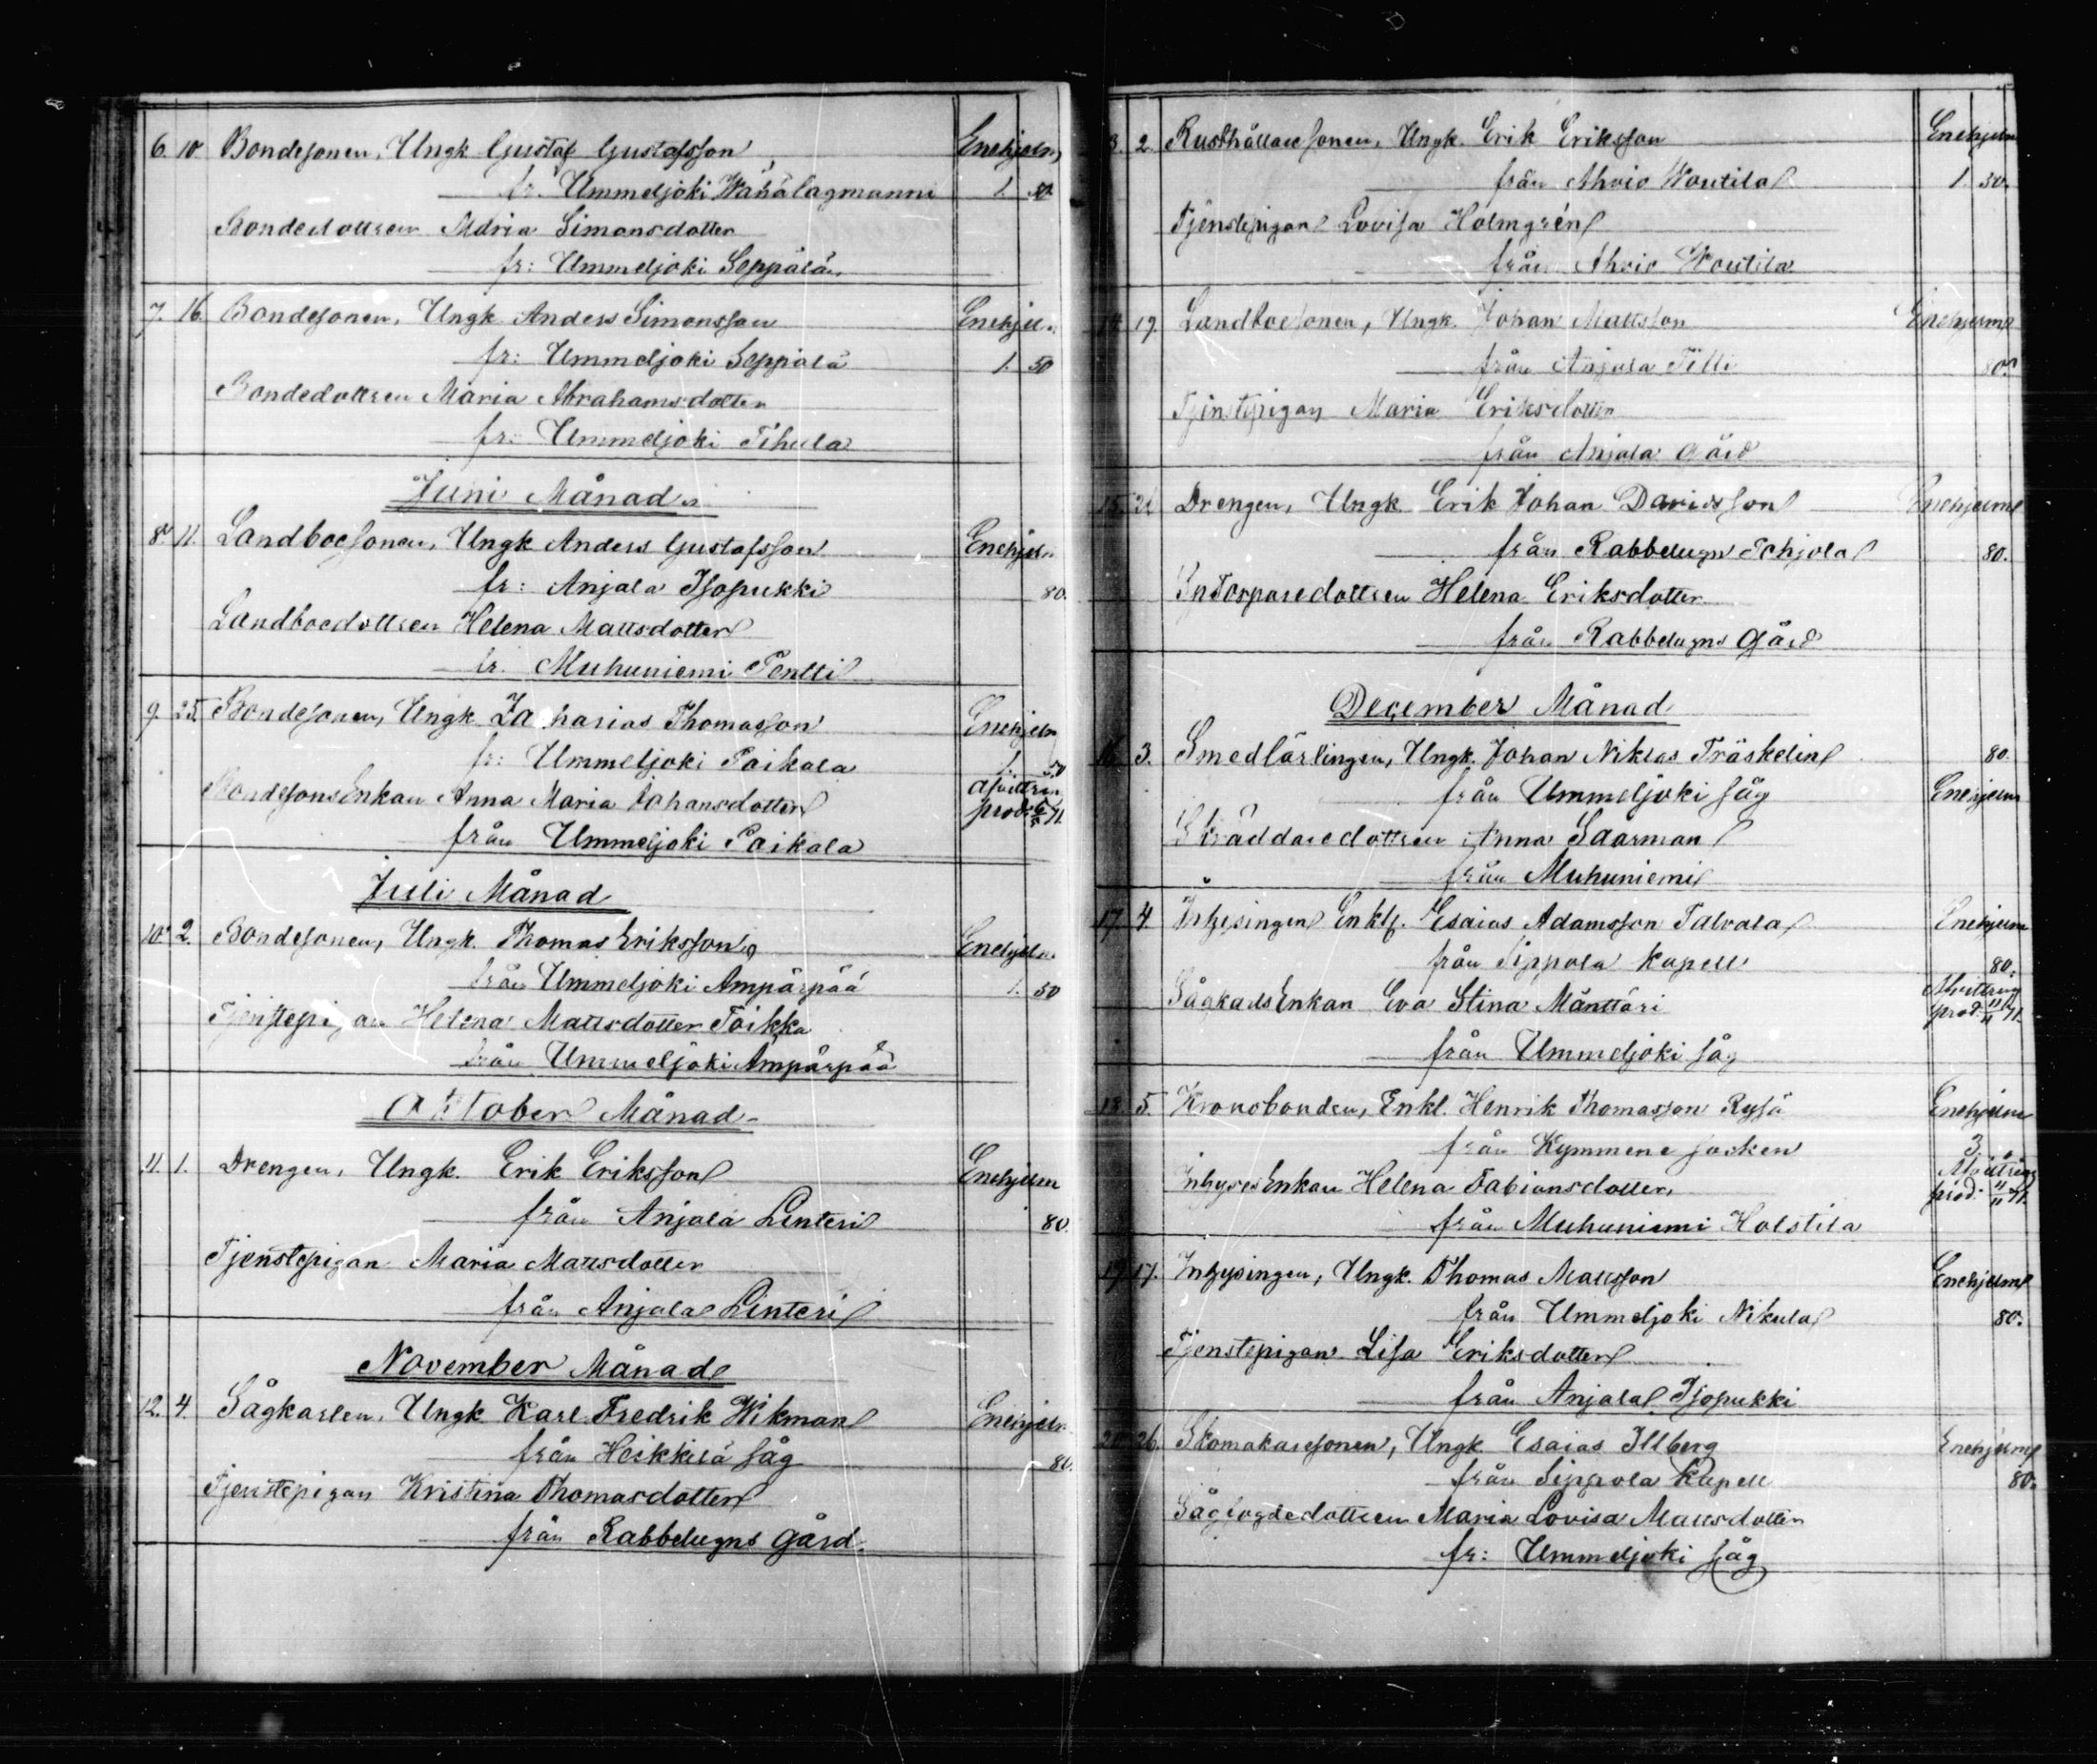 6. 10 Bondesonen, Ungk Gustaf Gustafsson Enehjelm
fr. Ummeljoki Wähälagmanni 1. 50
Bondedottren Maria Simonsdotter
fr: Ummeljoki Seppälä
7. 16. Bondesonen, Ungk Anders Simonsson Enehjelm
fr: Ummeljoki Seppälä 1. 50
Bondedottren Maria Abrahamsdotter
fr: Ummeljoki Tihula
Juni Månad
8. 11. Landboesonen, Ungk Anders Gustafsson Enehjelm
fr: Anjala Isopukki 80.
Landboedottren Helena Mattsdotter
fr. Muhuniemi Pentti
9. 25. Bondesonen, Ungk Zacharias Thomasson Enehjelm
fr: Ummeljoki Paikala 1. 50
Bondesons Enkan Anna Maria Johansdotter Afvittring prod.
från Ummeljoki Paikala
Juli Månad
10. 2. Bondesonen, Ungk. Thomas Eriksson Enehjelm
från Ummeljoki Ampärpää 1. 50
Tjenstepigan Helena Mattsdotter Toikka
från Ummeljoki Ampärpää
Oktober Månad
11. 1. Drengen, Ungk. Erik Eriksson Enehjelm
från Anjala Linteri 80.
Tjenstepigan Maria Mattsdotter
från Anjala Linteri
November Månad
12. 4. Sågkarlen, Ungk Karl Fredrik Wikman Enehjelm
från Heikkilä såg 80.
Tjenstepigan Kristina Thomasdotter
från Rabbelugns gård.
3. 2. Rusthållaresonen, Ungk. Erik Eriksson Enehjelm
från Ahvio Woutila 1. 50.
Tjenstepigan Lovisa Holmgrén
från Ahvio Woutila
14 19. Landboesonen, Ungk. Johan Mattsson Enehjelm
från Anjala Tilli 80.
Tjenstepigan Maria Eriksdotter
från Anjala Gård
15. 21 Drengen, Ungk. Erik Johan Davidsson Enehjelm
från Rabbelugn Pohjola 80.
Torparedottren Helena Eriksdotter
från Rabbelugns Gård
December Månad
16 3. Smedlärlingen, Ungk. Johan Niklas Träskelin 80.
från Ummeljoki såg Enehjelm
Skräddaredottren Anna Saarman
från Muhuniemi
17. 4. Inhysingen Enkl. Esaias Adamsson Talvala Enehjelm
från Sippola Kapell 80.
Sågkarls Enkan Eva Stina Mänttäri Afvittring prod. 11/11 71.
från Ummeljoki såg
18. 5. Kronobonden, Enkl. Henrik Thomasson Rysä Enehjelm
från Kymmene socken 3.
Inhyses Enkan Helena Fabiansdotter, Afvittring prod. 11/11 71.
från Muhuniemi Holstila
19 17. Inhysingen, Ungk. Thomas Mattsson Enehjelm
från Ummeljoki Nikula 80.
Tjenstepigan Lisa Eriksdotter
från Anjala Isopukki
20 26. Skomakaresonen, Ungk Esaias Illberg Enehjelm
från Sippola Kapell 80.
Sågfogdedottren Maria Lovisa Mattsdotter
fr: Ummeljoki såg